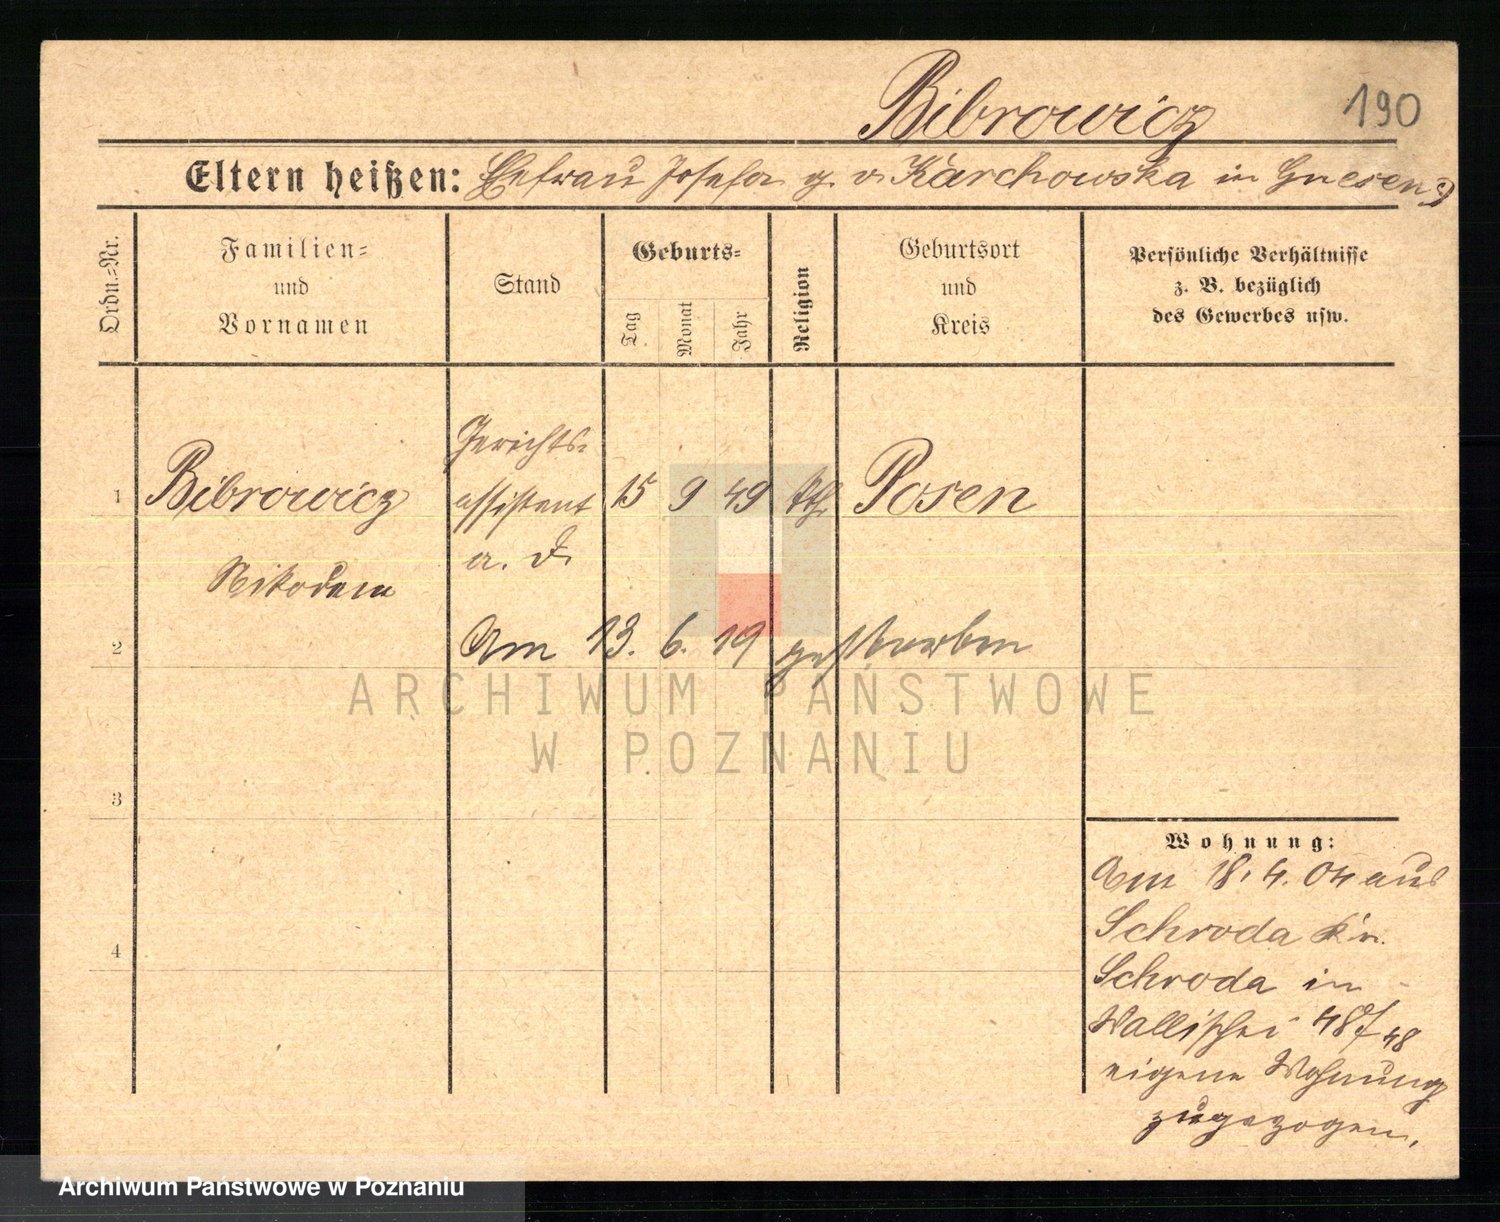 Bibrowicz
190
Eltern heißen: Ehefrau Josefa g. v. Karchowska in Gnesen
Ordn.=Nr.
Familien=
und
Vornamen
Stand
Geburts=
Tag
Monat
Jahr
Religion
Geburtsort
und
Kreis
Persönliche Verhältnisse
z. B. bezüglich
des Gewerbes usw.
Gerichts=
1 Bibrowicz assistent 15 9 49 kth. Posen
a. D.
Nikodem
2 Am 13. 6. 19 gestorben
ARCHIWUM PAŃSTWOWE
W POZNANIU
3
Wohnung:
Am 18. 4. 04 aus
Schroda Kr.
4
Schroda in
Wallischei 48
eigene Wohnung
zugezogen.
Archiwum Państwowe w Poznaniu